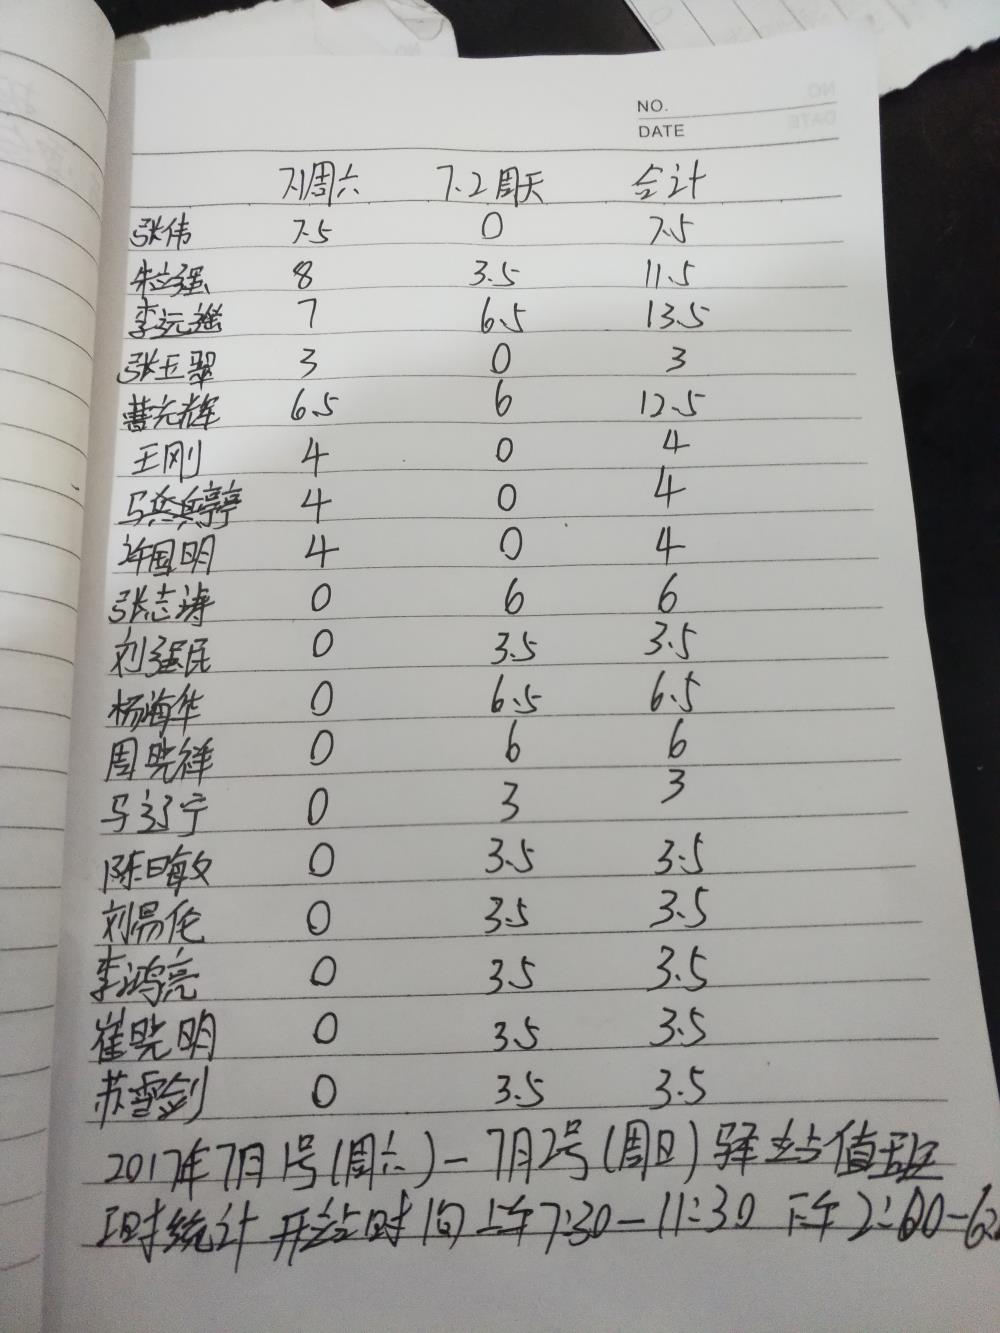 NO.
DATE
7.1周六 7.2周天 合计
张伟 7.5 0 7.5
朱立强 8 3.5 11.5
李远遥 7 6.5 13.5
张玉翠 3 0 3
曹光辉 6.5 6 12.5
王刚 4 0 4
马兵兵婷 4 0 4
许国明 4 0 4
张志涛 0 6 6
刘强民 0 3.5 3.5
杨海华 0 6.5 6.5
周晓祥 0 6 6
马辽宁 0 3 3
陈日敏 0 3.5 3.5
刘易伦 0 3.5 3.5
李鸿亮 0 3.5 3.5
崔晓明 0 3.5 3.5
苏雪剑 0 3.5 3.5
2017年7月1号(周六)-7月2号(周日)驿站值班
工时统计 开站时间 上午7:30-11:30 下午2:00-6: